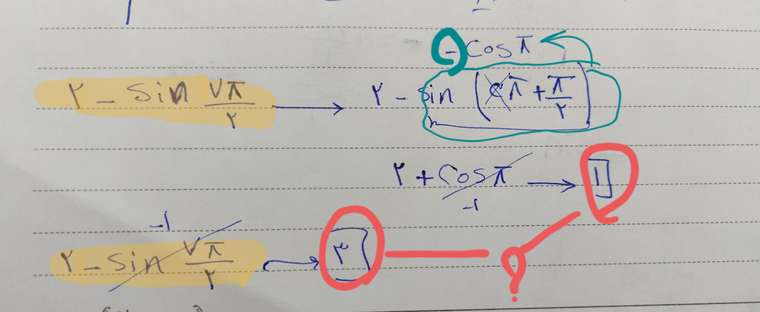 - cos π
۲ - sin ۷π/۲ → ۲ - sin (π + π/۲)
۲ + cos π → ۱
-۱
-۱
۲ - sin ۷π/۲ → ۳ ?